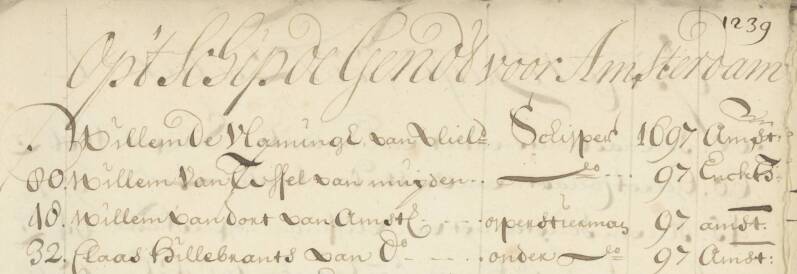 1239
Op't schip de Gendt voor Amsterdam
. Willem de Vlamingh van Vliel: Schipper 1697 Amst:
80. Willem van Tessel van muijden .. — do ... 97 Enckh:
48. Willem van dort van Amst: .... opperstierman 97 amst:
32. Claas Hillebrants van do .... onder — do 97 Amst: